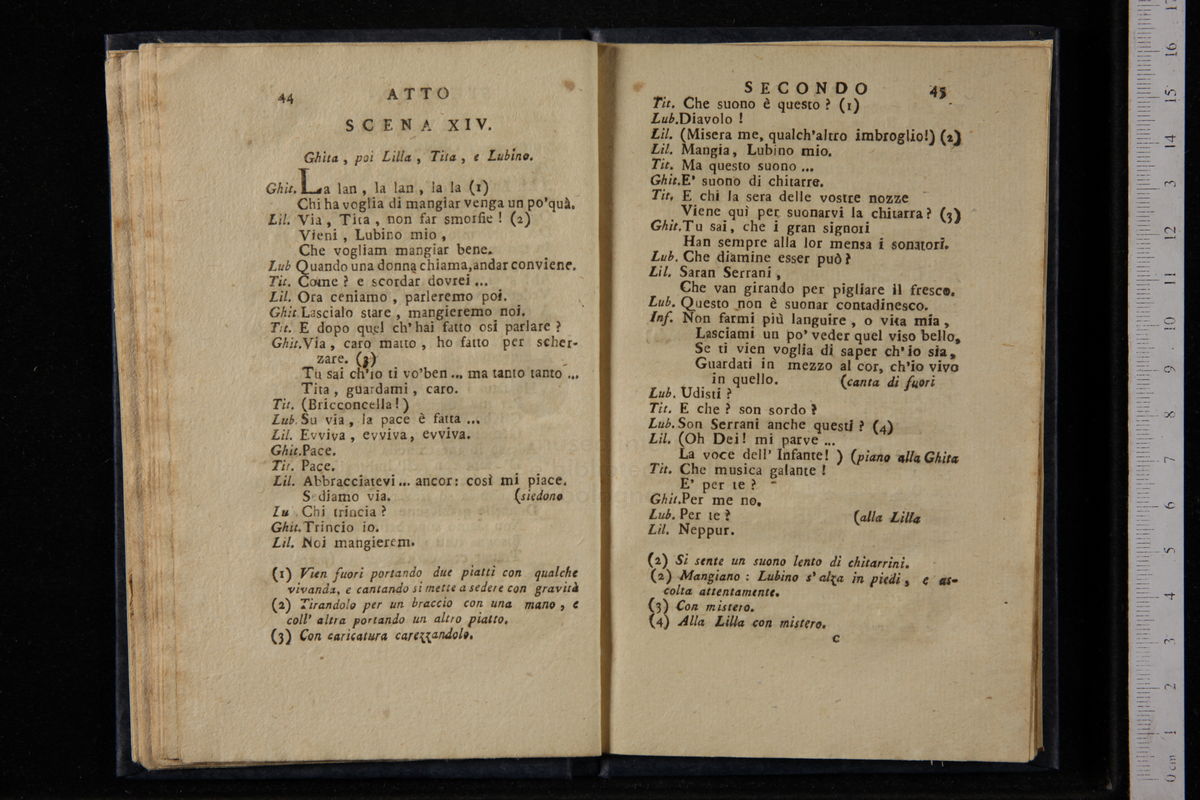 44 ATTO
SCENA XIV.
Ghita , poi Lilla , Tita , e Lubino.
Ghit. La lan , la lan , la la (1)
Chi ha voglia di mangiar venga un po'quà.
Lil. Via , Tita , non far smorfie ! (2)
Vieni , Lubino mio ,
Che vogliam mangiar bene.
Lub Quando una donna chiama,andar conviene.
Tit. Come ? e scordar dovrei ...
Lil. Ora ceniamo , parleremo poi.
Ghit Lascialo stare , mangieremo noi.
Tit. E dopo quel ch' hai fatto osi parlare ?
Ghit.Via , caro matto , ho fatto per scher-
zare. (3)
Tu sai ch'io ti vo'ben ... ma tanto tanto ...
Tita , guardami , caro.
Tit. (Bricconcella ! )
Lub. Su via , la pace è fatta ...
Lil. Evviva , evviva, evviva.
Ghit.Pace.
Tit. Pace.
Lil. Abbracciatevi ... ancor: così mi piace.
Sediamo via. (siedono
Lu . Chi trincia ?
Ghit.Trincio io.
Lil. Noi mangierem.
(1) Vien fuori portando due piatti con qualche
vivanda, e cantando si mette a sedere con gravità
(2) Tirandolo per un braccio con una mano , e
coll' altra portando un altro piatto.
(3) Con caricatura carezzandolo.
SECONDO 45
Tit. Che suono è questo ? (1)
Lub.Diavolo !
Lil. (Misera me, qualch'altro imbroglio!) (2)
Lil. Mangia, Lubino mio.
Tit. Ma questo suono ...
Ghit.E' suono di chitarre.
Tit. E chi la sera delle vostre nozze
Viene qui per suonarvi la chitarra ? (3)
Ghit.Tu sai, che i gran signori
Han sempre alla lor mensa i sonatori.
Lub. Che diamine esser può ?
Lil. Saran Serrani ,
Che van girando per pigliare il fresco.
Lub. Questo non è suonar contadinesco.
Inf. Non farmi più languire , o vita mia ,
Lasciami un po' veder quel viso bello,
Se ti vien voglia di saper ch'io sia,
Guardati in mezzo al cor, ch'io vivo
in quello. (canta di fuori
Lub. Udisti ?
Tit. E che ? son sordo ?
Lub. Son Serrani anche questi ? (4)
Lil. (Oh Dei! mi parve ...
La voce dell' Infante! ) (piano alla Ghita
Tit. Che musica galante !
E' per te ?
Ghit.Per me no.
Lub. Per te ? (alla Lilla
Lil. Neppur.
(2) Si sente un suono lento di chitarrini.
(2) Mangiano : Lubino s'alza in piedi , e as-
colta attentamente.
(3) Con mistero.
(4) Alla Lilla con mistero.
C
0 cm 1 2 3 4 5 6 7 8 9 10 11 12 13 14 15 16 17